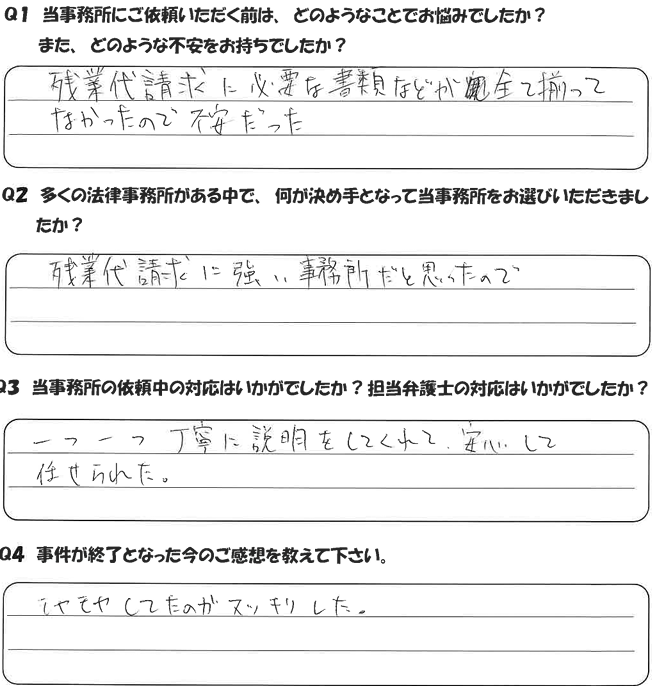 Q1 当事務所にご依頼いただく前は、どのようなことでお悩みでしたか？
また、どのような不安をお持ちでしたか？
残業代請求に必要な書類などが全て揃って
なかったので不安だった
Q2 多くの法律事務所がある中で、何が決め手となって当事務所をお選びいただきまし
たか？
残業代請求に強い事務所だと思ったので
Q3 当事務所の依頼中の対応はいかがでしたか？担当弁護士の対応はいかがでしたか？
一つ一つ丁寧に説明をしてくれて、安心して
任せられた。
Q4 事件が終了となった今のご感想を教えて下さい。
モヤモヤしてたのがスッキリした。